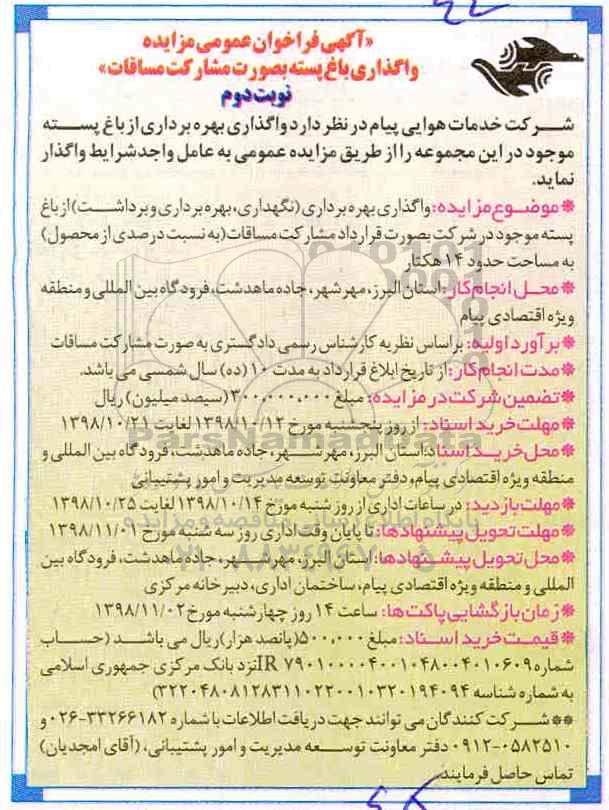 «آگهی فراخوان عمومی مزایده
واگذاری باغ پسته بصورت مشارکت مساقات»
نوبت دوم
شرکت خدمات هوایی پیام در نظر دارد واگذاری بهره برداری از باغ پسته
موجود در این مجموعه را از طریق مزایده عمومی به عامل واجد شرایط واگذار
نماید.
*موضوع مزایده: واگذاری بهره برداری (نگهداری، بهره برداری و برداشت) از باغ
پسته موجود در شرکت بصورت قرارداد مشارکت مساقات (به نسبت درصدی از محصول)
به مساحت حدود ۱۴ هکتار
*محل انجام کار: استان البرز، مهرشهر، جاده ماهدشت، فرودگاه بین المللی و منطقه
ویژه اقتصادی پیام
*برآورد اولیه: براساس نظریه کارشناس رسمی دادگستری به صورت مشارکت مساقات
*مدت انجام کار: از تاریخ ابلاغ قرارداد به مدت ۱۰ (ده) سال شمسی می باشد.
*تضمین شرکت در مزایده: مبلغ ۳۰۰،۰۰۰،۰۰۰ (سیصد میلیون) ریال
*مهلت خرید اسناد: از روز پنجشنبه مورخ ۱۳۹۸/۱۰/۱۲ لغایت ۱۳۹۸/۱۰/۲۱
*محل خرید اسناد: استان البرز، مهرشهر، جاده ماهدشت، فرودگاه بین المللی و
منطقه ویژه اقتصادی پیام، دفتر معاونت توسعه مدیریت و امور پشتیبانی
*مهلت بازدید: در ساعات اداری از روز شنبه مورخ ۱۳۹۸/۱۰/۱۴ لغایت ۱۳۹۸/۱۰/۲۵
*مهلت تحویل پیشنهادها: تا پایان وقت اداری روز سه شنبه مورخ ۱۳۹۸/۱۱/۰۱
*محل تحویل پیشنهادها: استان البرز، مهرشهر، جاده ماهدشت، فرودگاه بین
المللی و منطقه ویژه اقتصادی پیام، ساختمان اداری، دبیرخانه مرکزی
*زمان بازگشایی پاکت ها: ساعت ۱۴ روز چهارشنبه مورخ ۱۳۹۸/۱۱/۰۲
*قیمت خرید اسناد: مبلغ ۵۰۰،۰۰۰ (پانصد هزار) ریال می باشد (حساب
شماره IR ۷۹۰۱۰۰۰۰۴۰۰۱۰۴۸۰۰۴۰۱۰۶۰۹ نزد بانک مرکزی جمهوری اسلامی
به شماره شناسه ۳۲۲۰۴۸۰۸۱۲۸۳۱۱۰۲۲۰۰۱۰۳۲۰۱۹۴۰۹۴)
**شرکت کنندگان می توانند جهت دریافت اطلاعات با شماره ۰۲۶-۳۳۲۶۶۱۸۲ و
۰۹۱۲-۰۵۸۲۵۱۰ دفتر معاونت توسعه مدیریت و امور پشتیبانی، (آقای امجدیان)
تماس حاصل فرمایند.
ParsNamadData